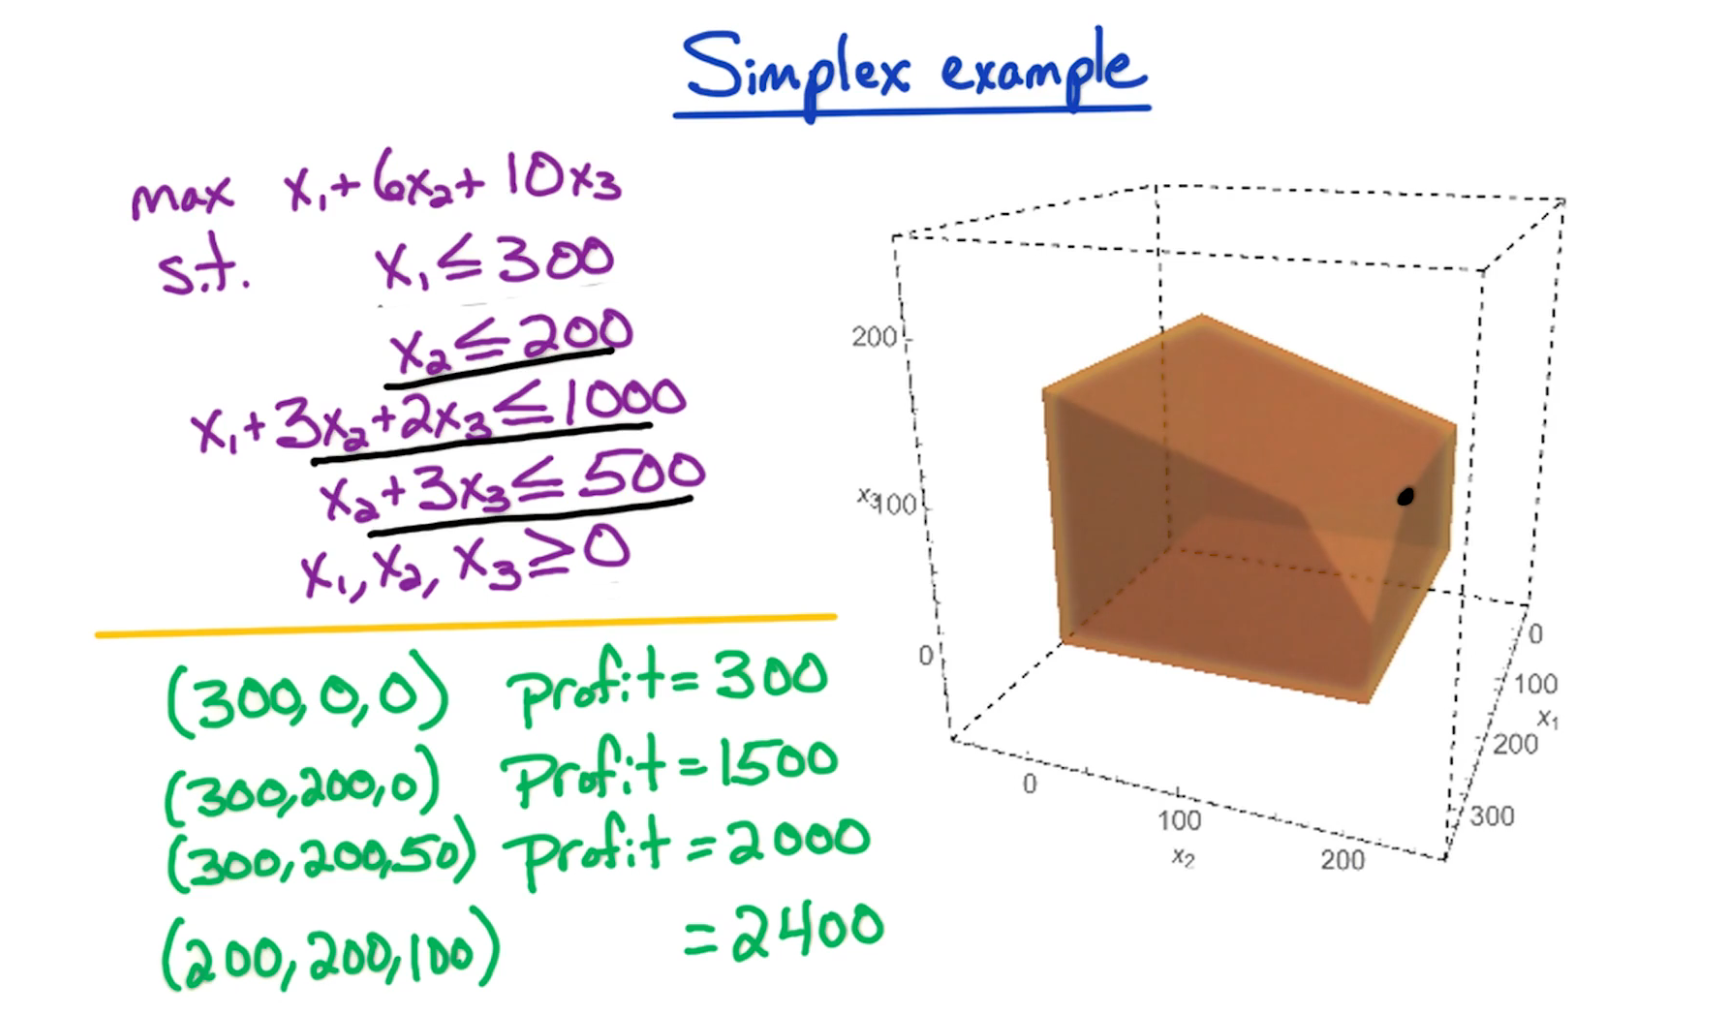 Simplex example
max x₁+6x₂+10x₃
s.t. x₁≤300
x₂≤200
x₁+3x₂+2x₃≤1000
x₂+3x₃≤500
x₁,x₂,x₃≥0
(300,0,0) Profit=300
(300,200,0) Profit=1500
(300,200,50) Profit=2000
(200,200,100) =2400
200
x₃
100
0
0
100
200
x₂
0
100
x₁
200
300